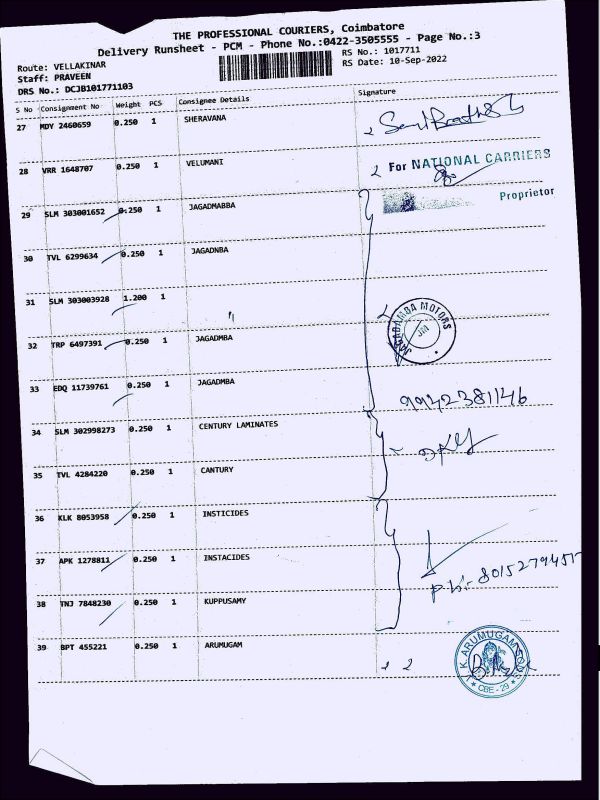 THE PROFESSIONAL COURIERS, Coimbatore
Delivery Runsheet - PCM - Phone No.:0422-3505555 - Page No.:3
Route: VELLAKINAR
RS No.: 1017711
Staff: PRAVEEN
RS Date: 10-Sep-2022
DRS No.: DCJB101771103
S No Consignment No Weight PCS Consignee Details Signature
27 MDY 2460659 0.250 1 SHERAVANA
28 VRR 1648707 0.250 1 VELUMANI
2 For NATIONAL CARRIERS
Proprietor
29 SLM 303001652 0.250 1 JAGADMABBA
30 TVL 6299634 0.250 1 JAGADNBA
31 SLM 303003928 1.200 1
JAGADAMBA MOTORS
JM
32 TRP 6497391 0.250 1 JAGADMBA
33 EDQ 11739761 0.250 1 JAGADMBA
9942381146
34 SLM 302998273 0.250 1 CENTURY LAMINATES
35 TVL 4284220 0.250 1 CANTURY
36 KLK 8053958 0.250 1 INSTICIDES
37 APK 1278811 0.250 1 INSTACIDES
38 TNJ 7848230 0.250 1 KUPPUSAMY
39 BPT 455221 0.250 1 ARUMUGAM
K. ARUMUGAM SONS
CBE - 29